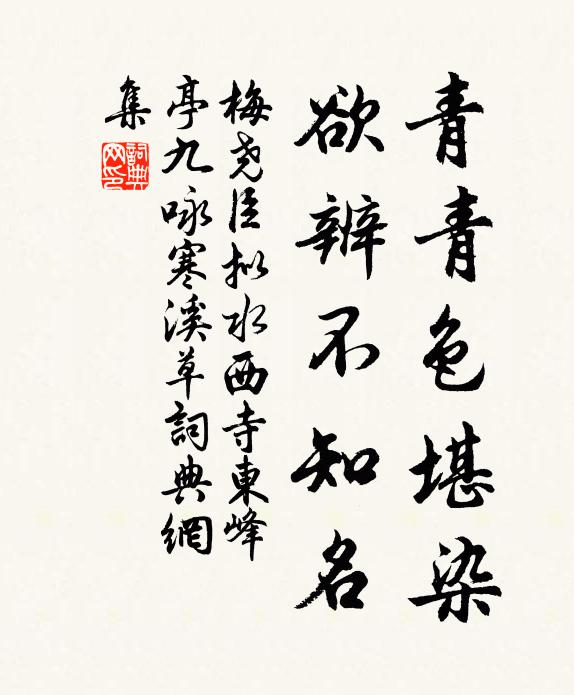 青青色堪染
欲辨不知名
梅尧臣拟水西寺東峰
亭九咏寒溪草詞典網
集
詞典
网印